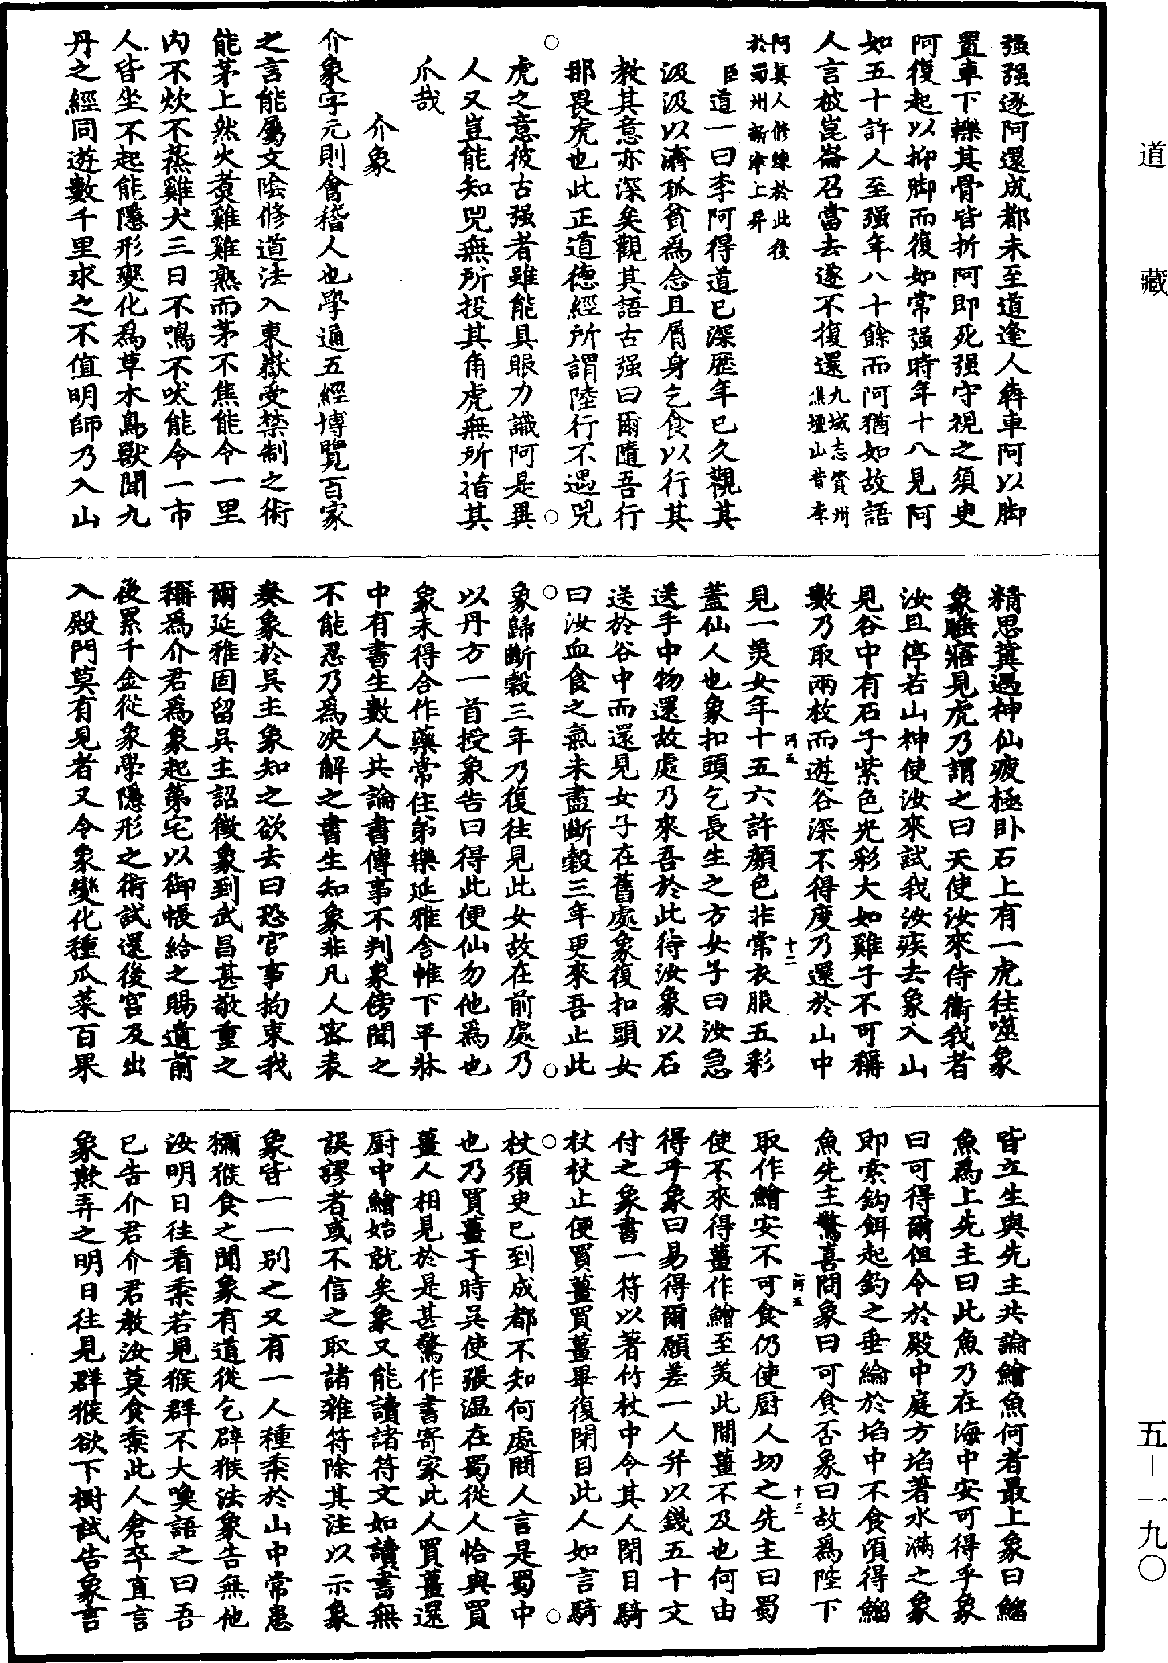 强强逐阿還成都未至道逢人犇車阿以脚
置車下轢其骨皆折阿即死强守視之須臾
阿復起以抑脚而復如常强時年十八見阿
如五十許人至强年八十餘而阿猶如故語
人言被崑崙召當去遂不復還九域志資州
漢壇山昔李
阿真人修煉於此後
於蜀州新津上昇
臣道一曰李阿得道已深歷年已久觀其
汲汲以濟孤貧爲念且屑身乞食以行其
教其意亦深矣觀其語古强曰爾隨吾行
那畏虎也此正道德經所謂陸行不遇兕
虎之意彼古强者雖能具眼力識阿是異
人又豈能知兕無所投其角虎無所措其
爪哉
介象
介象字元則會稽人也學通五經博覽百家
之言能屬文陰修道法入東嶽受禁制之術
能茅上然火煮雞雞熟而茅不焦能令一里
内不炊不蒸雞犬三日不鳴不吠能令一市
人皆坐不起能隱形變化爲草木鳥獸聞九
丹之經同遊數千里求之不值明師乃入山
精思冀遇神仙疲極卧石上有一虎往噬象
象睡寤見虎乃謂之曰天使汝來侍衛我者
汝且停若山神使汝來試我汝疾去象入山
見谷中有石子紫色光彩大如雞子不可稱
數乃取兩枚而遊谷深不得度乃還於山中
見一美女年十五六許顏色非常衣服五彩
蓋仙人也象扣頭乞長生之方女子曰汝急
送手中物還故處乃來吾於此待汝象以石
送於谷中而還見女子在舊處象復扣頭女
曰汝血食之氣未盡斷穀三年更來吾止此
象歸斷穀三年乃復往見此女故在前處乃
以丹方一首授象告曰得此便仙勿他爲也
象未得合作藥常住弟樂延雅舍帷下平牀
中有書生數人共論書傳事不判象傍聞之
不能忍乃爲決解之書生知象非凡人密表
奏象於吳主象知之欲去曰恐官事拘束我
爾延雅固留吳主詔徵象到武昌甚敬重之
稱爲介君爲象起第宅以御帳給之賜遺前
後累千金從象學隱形之術試還後宮及出
入殿門莫有見者又令象變化種瓜菜百果
皆立生與先主共論鱠魚何者最上象曰鯔
魚爲上先主曰此魚乃在海中安可得乎象
曰可得爾但令於殿中庭方埳著水滿之象
即索鈎餌起釣之垂綸於埳中不食頃得鯔
魚先主驚喜問象曰可食否象曰故爲陛下
取作鱠安不可食仍使厨人切之先主曰蜀
使不來得薑作鱠至美此間薑不及也何由
得乎象曰易得爾願差一人并以錢五十文
付之象書一符以著竹杖中令其人閉目騎
杖杖止便買薑買薑畢復閉目此人如言騎
杖須臾已到成都不知何處問人言是蜀中
也乃買薑于時吳使張温在蜀從人恰與買
薑人相見於是甚驚作書寄家此人買薑還
厨中鱠始就矣象又能讀諸符文如讀書無
誤謬者或不信之取諸雜符除其注以示象
象皆一一別之又有一人種黍於山中常患
獼猴食之聞象有道從乞辟猴法象告無他
汝明日往看黍若見猴群不大喚語之曰吾
已告介君介君教汝莫食黍此人倉卒直言
象欺弄之明日往見群猴欲下樹試告象言
河五
十二
河五
十三
道藏
五-一九〇